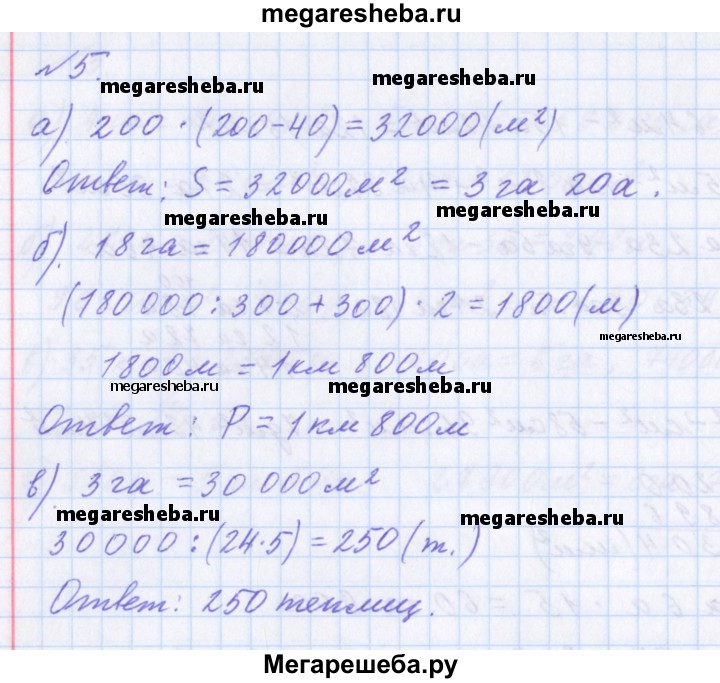 megaresheba.ru
№5.
megaresheba.ru megaresheba.ru
а) 200 · (200-40) = 32000 (м²)
Ответ: S = 32000 м² = 3 га 20 а.
megaresheba.ru megaresheba.ru
б). 18 га = 180000 м²
(180 000 : 300 + 300) · 2 = 1800 (м)
megaresheba.ru
1800 м = 1 км 800 м
megaresheba.ru megaresheba.ru
Ответ: P = 1 км 800 м
в) 3 га = 30 000 м²
megaresheba.ru megaresheba.ru
30 000 : (24·5) = 250 (т.)
Ответ: 250 теплиц.
Мегарешеба.ру